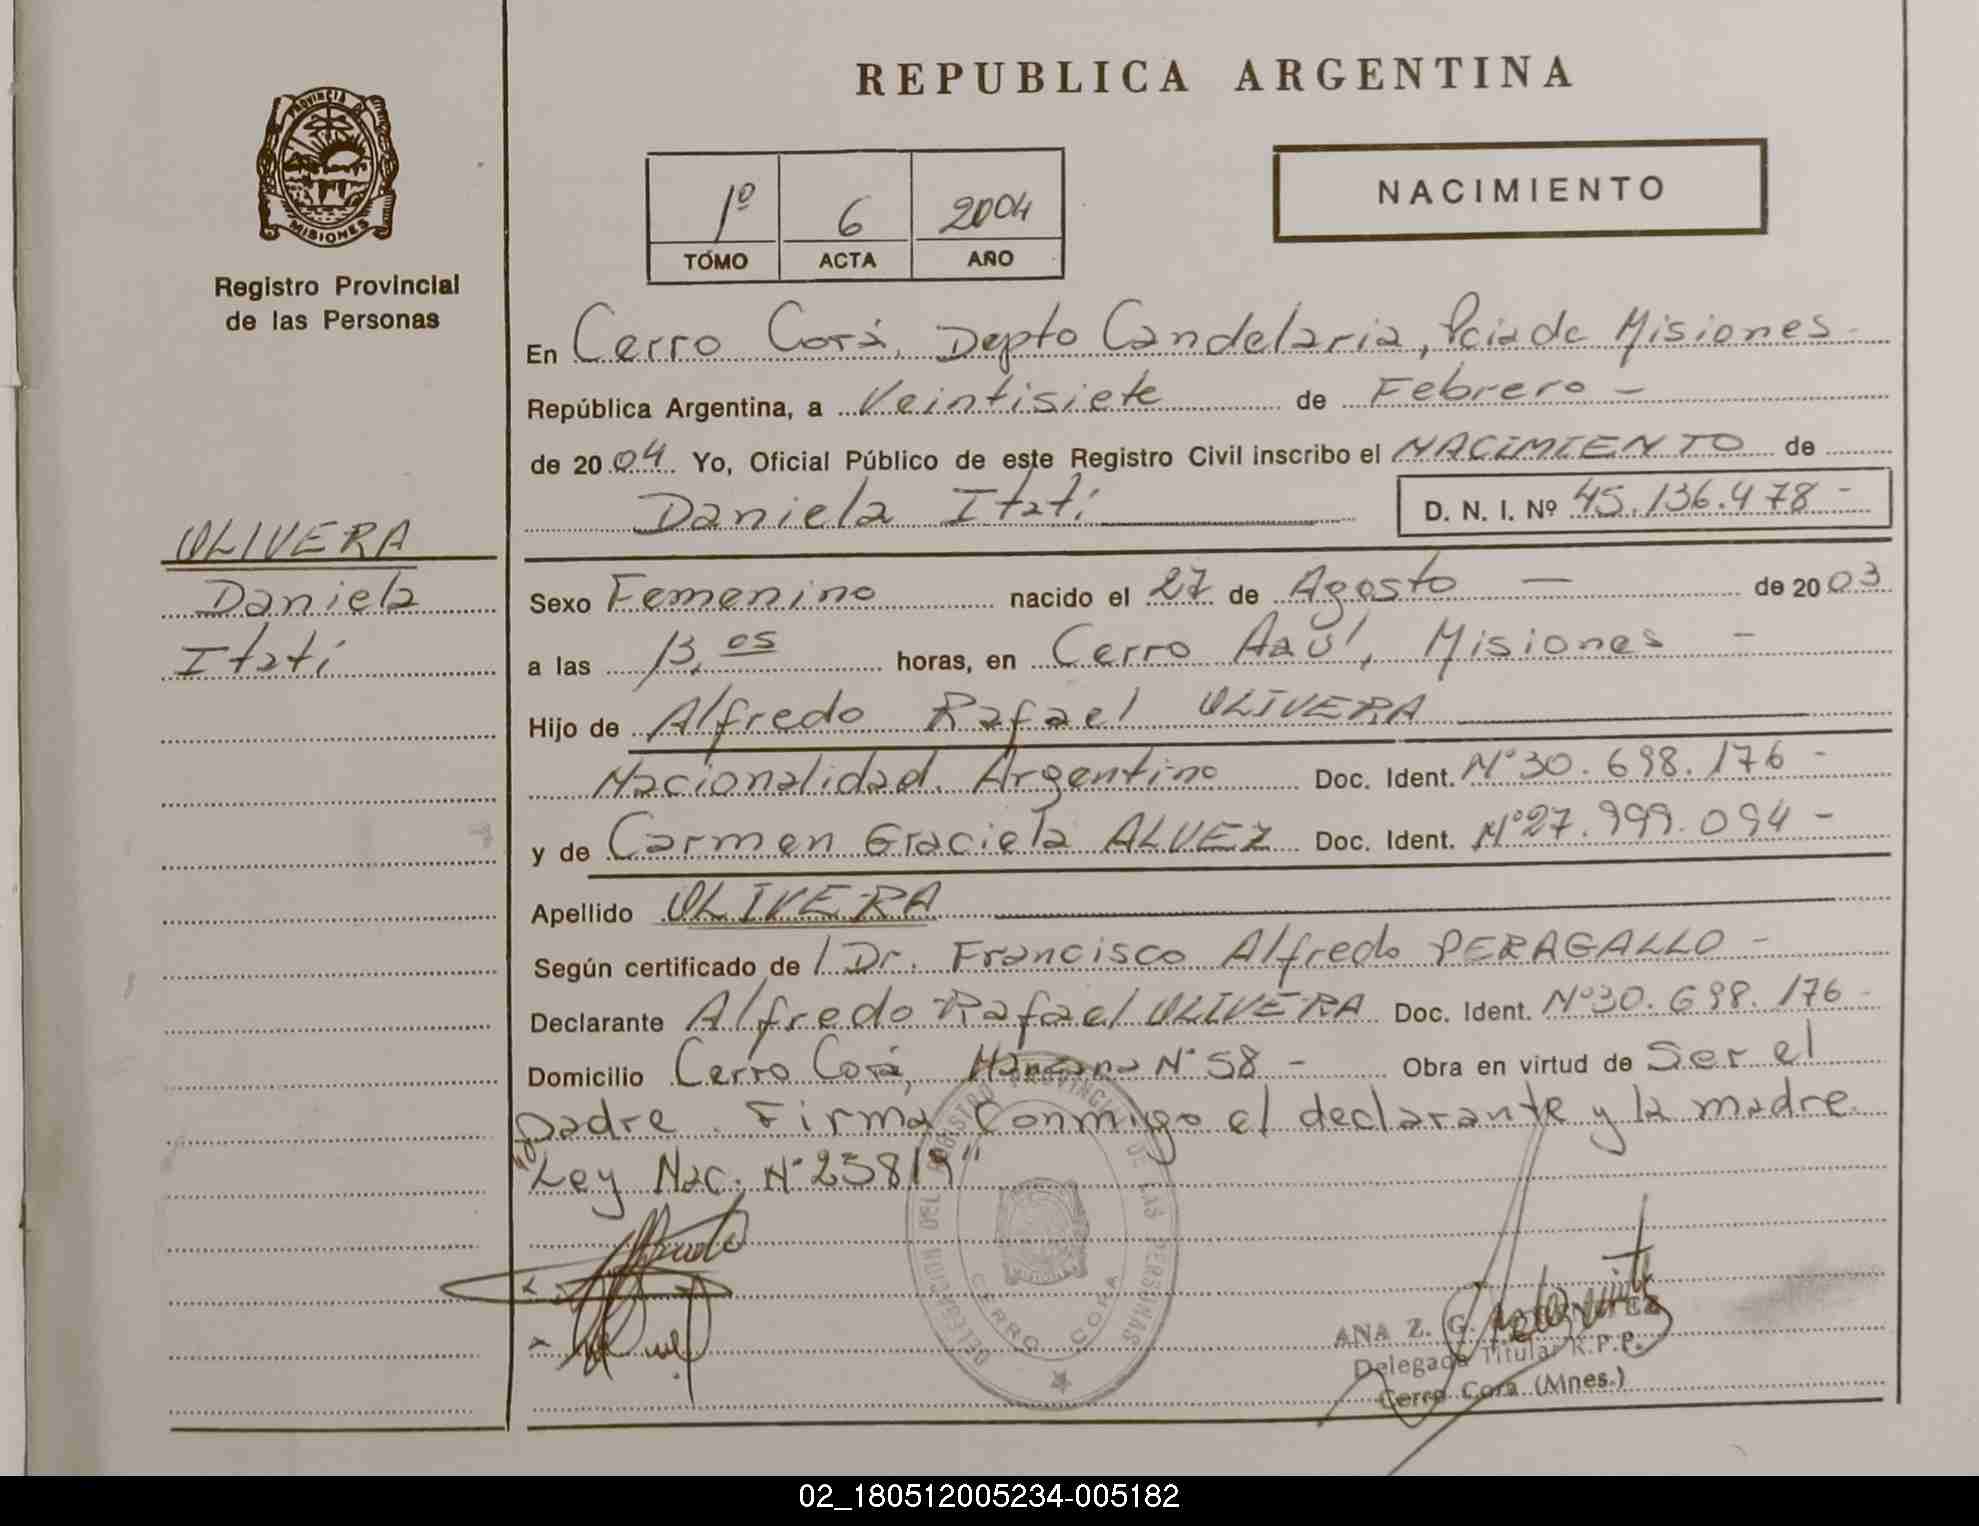 REPUBLICA ARGENTINA
PROVINCIA DE
MISIONES
Registro Provincial
de las Personas
1º 6 2004
TOMO ACTA AÑO
NACIMIENTO
En Cerro Corá, Depto Candelaria, Pcia de Misiones -
República Argentina, a Veintisiete de Febrero -
de 2004 Yo, Oficial Público de este Registro Civil inscribo el NACIMIENTO de
Daniela Itatí
D. N. I. Nº 45.136.478 -
OLIVERA
Daniela
Itatí
Sexo Femenino nacido el 27 de Agosto — de 2003
a las 13,05 horas, en Cerro Azul, Misiones -
Hijo de Alfredo Rafael OLIVERA
Nacionalidad Argentino Doc. Ident. Nº 30.698.176 -
y de Carmen Graciela ALVEZ Doc. Ident. Nº 27.999.094 -
Apellido OLIVERA
Según certificado de / Dr. Francisco Alfredo PERAGALLO -
Declarante Alfredo Rafael OLIVERA Doc. Ident. Nº 30.698.176 -
Domicilio Cerro Corá, Manzana Nº 58 - Obra en virtud de Ser el
padre. Firma Conmigo el declarante y la madre.
"Ley Nac. Nº 25819"
DELEGACION DEL REGISTRO PROVINCIAL DE LAS PERSONAS
CERRO CORA
ANA Z. G.
Delegada Titular R.P.P.
Cerro Cora (Mnes.)
02_180512005234-005182